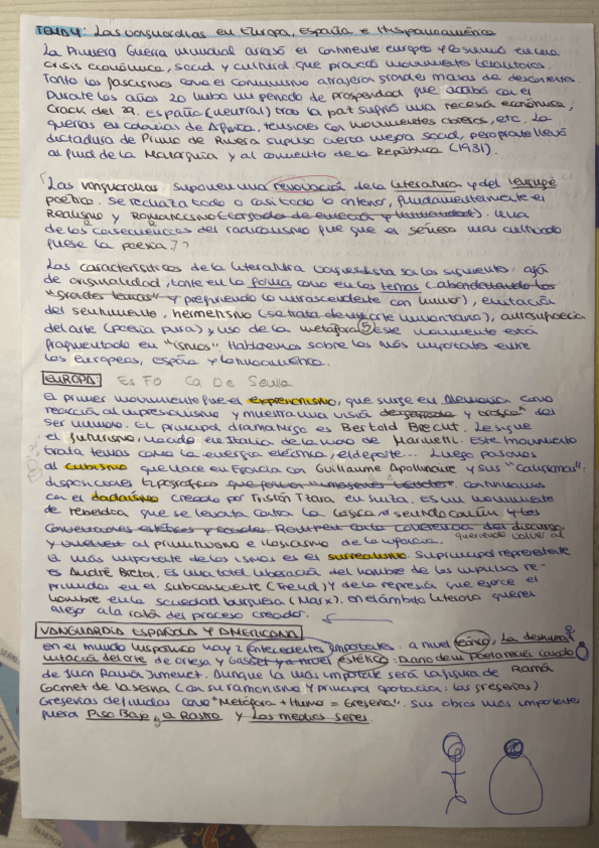 TEMA 4: Las vanguardias en Europa, España e Hispanoamérica
La Primera Guerra mundial arrasó el continente europeo y lo sumió en una
crisis económica, social y cultural que provocó movimientos
Tanto los fascismos como el comunismo atrajeron grandes masas de descontentos.
Durante los años 20 hubo un periodo de prosperidad que acabó con el
Crack del 29. España (neutral) tras la paz sufrió una recesión económica,
guerras en colonias de África, tensiones con movimientos obreros, etc. La
dictadura de Primo de Rivera supuso cierta mejora social, pero pronto llevó
al final de la Monarquía y al comienzo de la República (1931).
Las vanguardias suponen una renovación de la literatura y del lenguaje
poético. Se rechaza todo o casi todo lo anterior, fundamentalmente el
Realismo y Romanticismo (cargados de emoción y humanidad). Una
de las consecuencias del radicalismo fue que el género más cultivado
fuese la poesía.
Las características de la literatura vanguardista son las siguientes: afán
de originalidad, tanto en la forma como en los temas (abandonando los
"grandes temas" y prefiriendo lo intrascendente con humor), evitación
del sentimiento, hermetismo (se trata de un arte minoritario), autosuficiencia
del arte (poesía pura) y uso de la metáfora. Este movimiento está
fragmentado en "ismos". Hablaremos sobre los más importantes entre
los europeos, españa y latinoamérica.
EUROPA Es Fo Ca De Sevilla
El primer movimiento fue el expresionismo, que surge en Alemania como
reacción al impresionismo y muestra una visión desgarrada y trágica del
ser humano. El principal dramaturgo es Bertold Brecht. Le sigue
el futurismo, nacido en Italia de la mano de Marinetti. Este movimiento
trata temas como la energía eléctrica, el deporte... Luego pasamos
al cubismo que nace en Francia con Guillaume Apollinaire y sus "caligramas":
disposiciones tipográficas que forman "imágenes visuales". continuamos
con el dadaísmo creado por Tristán Tzara en suiza. Es un movimiento
de rebeldía que se levanta contra la lógica, el sentido común y las
convenciones estéticas y sociales. Rompen con la coherencia del discurso
y vuelven al primitivismo e ilogicismo de la infancia. queriendo volver al
el más importante de los ismos es el surrealismo. Su principal representante
es André Breton. Es una total liberación del hombre de los impulsos re-
primidos en el subconsciente (Freud) y de la represión que ejerce el
hombre en la sociedad burguesa (Marx). En el ámbito literario quieren
alejar a la razón del proceso creador.
VANGUARDIA ESPAÑOLA Y AMERICANA
en el mundo hispánico hay 2 antecedentes importantes: a nivel teórico, La deshuma-
nización del arte de Ortega y Gasset y a nivel estético: Diario de un Poeta recién casado
de Juan Ramón Jimenez. Aunque la más importante será la figura de Ramón
Gómez de la Serna (con su ramonismo y principal aportación: las greguerías)
Greguerías definidas como "Metáfora + Humor = Greguería". Sus obras más importantes
fueron Piso Bajo, El Rastro y Los medios seres.